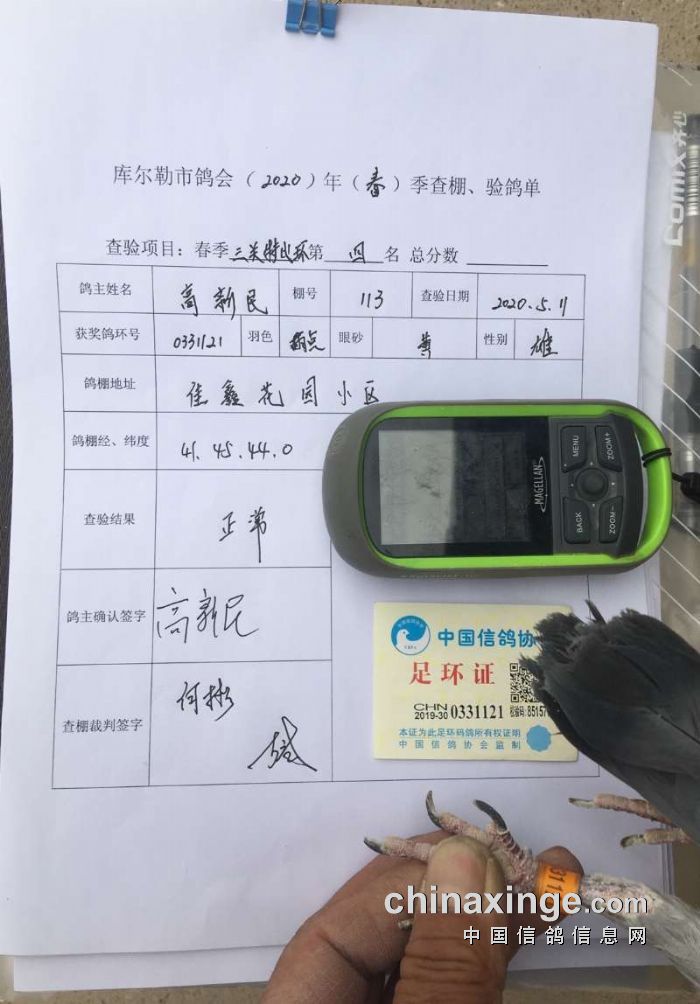 库尔勒市鸽会（2020）年（春）季查棚、验鸽单
查验项目：春季三关特比环第 四 名 总分数
鸽主姓名 高新民 棚号 113 查验日期 2020.5.11
获奖鸽环号 0331121 羽色 雨点 眼砂 黄 性别 雄
鸽棚地址 佳鑫花园小区
鸽棚经、纬度 41.45.44.0
查验结果 正常
鸽主确认签字 高新民
查棚裁判签字 何彬
comix 齐心
MAGELLAN
MENU
ZOOM+
BACK
ZOOM-
中国信鸽协
足环证
CHN
2019-30 0331121
本证为此足环码鸽所有权证明
中国信鸽协会监制
chinaxinge.com
中国信鸽信息网